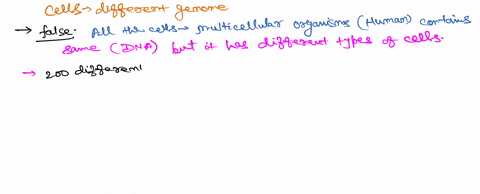 Cells → different genome
→ false. All the cells → multicellular organisms (Human) contains
same (DNA) but it has different types of cells.
→ 200 different